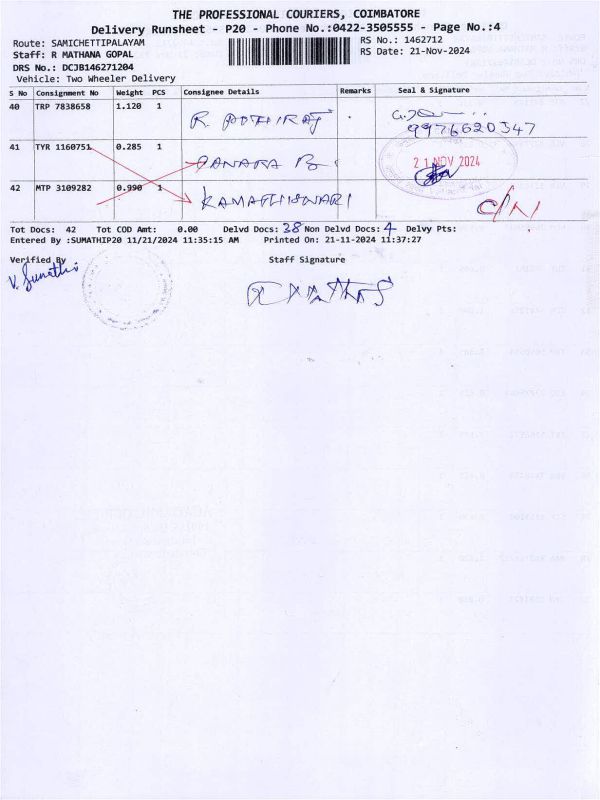 THE PROFESSIONAL COURIERS, COIMBATORE
Delivery Runsheet - P20 - Phone No.:0422-3505555 - Page No.:4
Route: SAMICHETTIPALAYAM RS No.: 1462712
Staff: R MATHANA GOPAL RS Date: 21-Nov-2024
DRS No.: DCJB146271204
Vehicle: Two Wheeler Delivery
S No Consignment No Weight PCS Consignee Details Remarks Seal & Signature
40 TRP 7838658 1.120 1
9976620347
41 TYR 1160751 0.285 1
21 NOV 2024
42 MTP 3109282 0.990 1
Tot Docs: 42 Tot COD Amt: 0.00 Delvd Docs: 38 Non Delvd Docs: 4 Delvy Pts:
Entered By :SUMATHIP20 11/21/2024 11:35:15 AM Printed On: 21-11-2024 11:37:27
Verified By Staff Signature
V. Sumathi